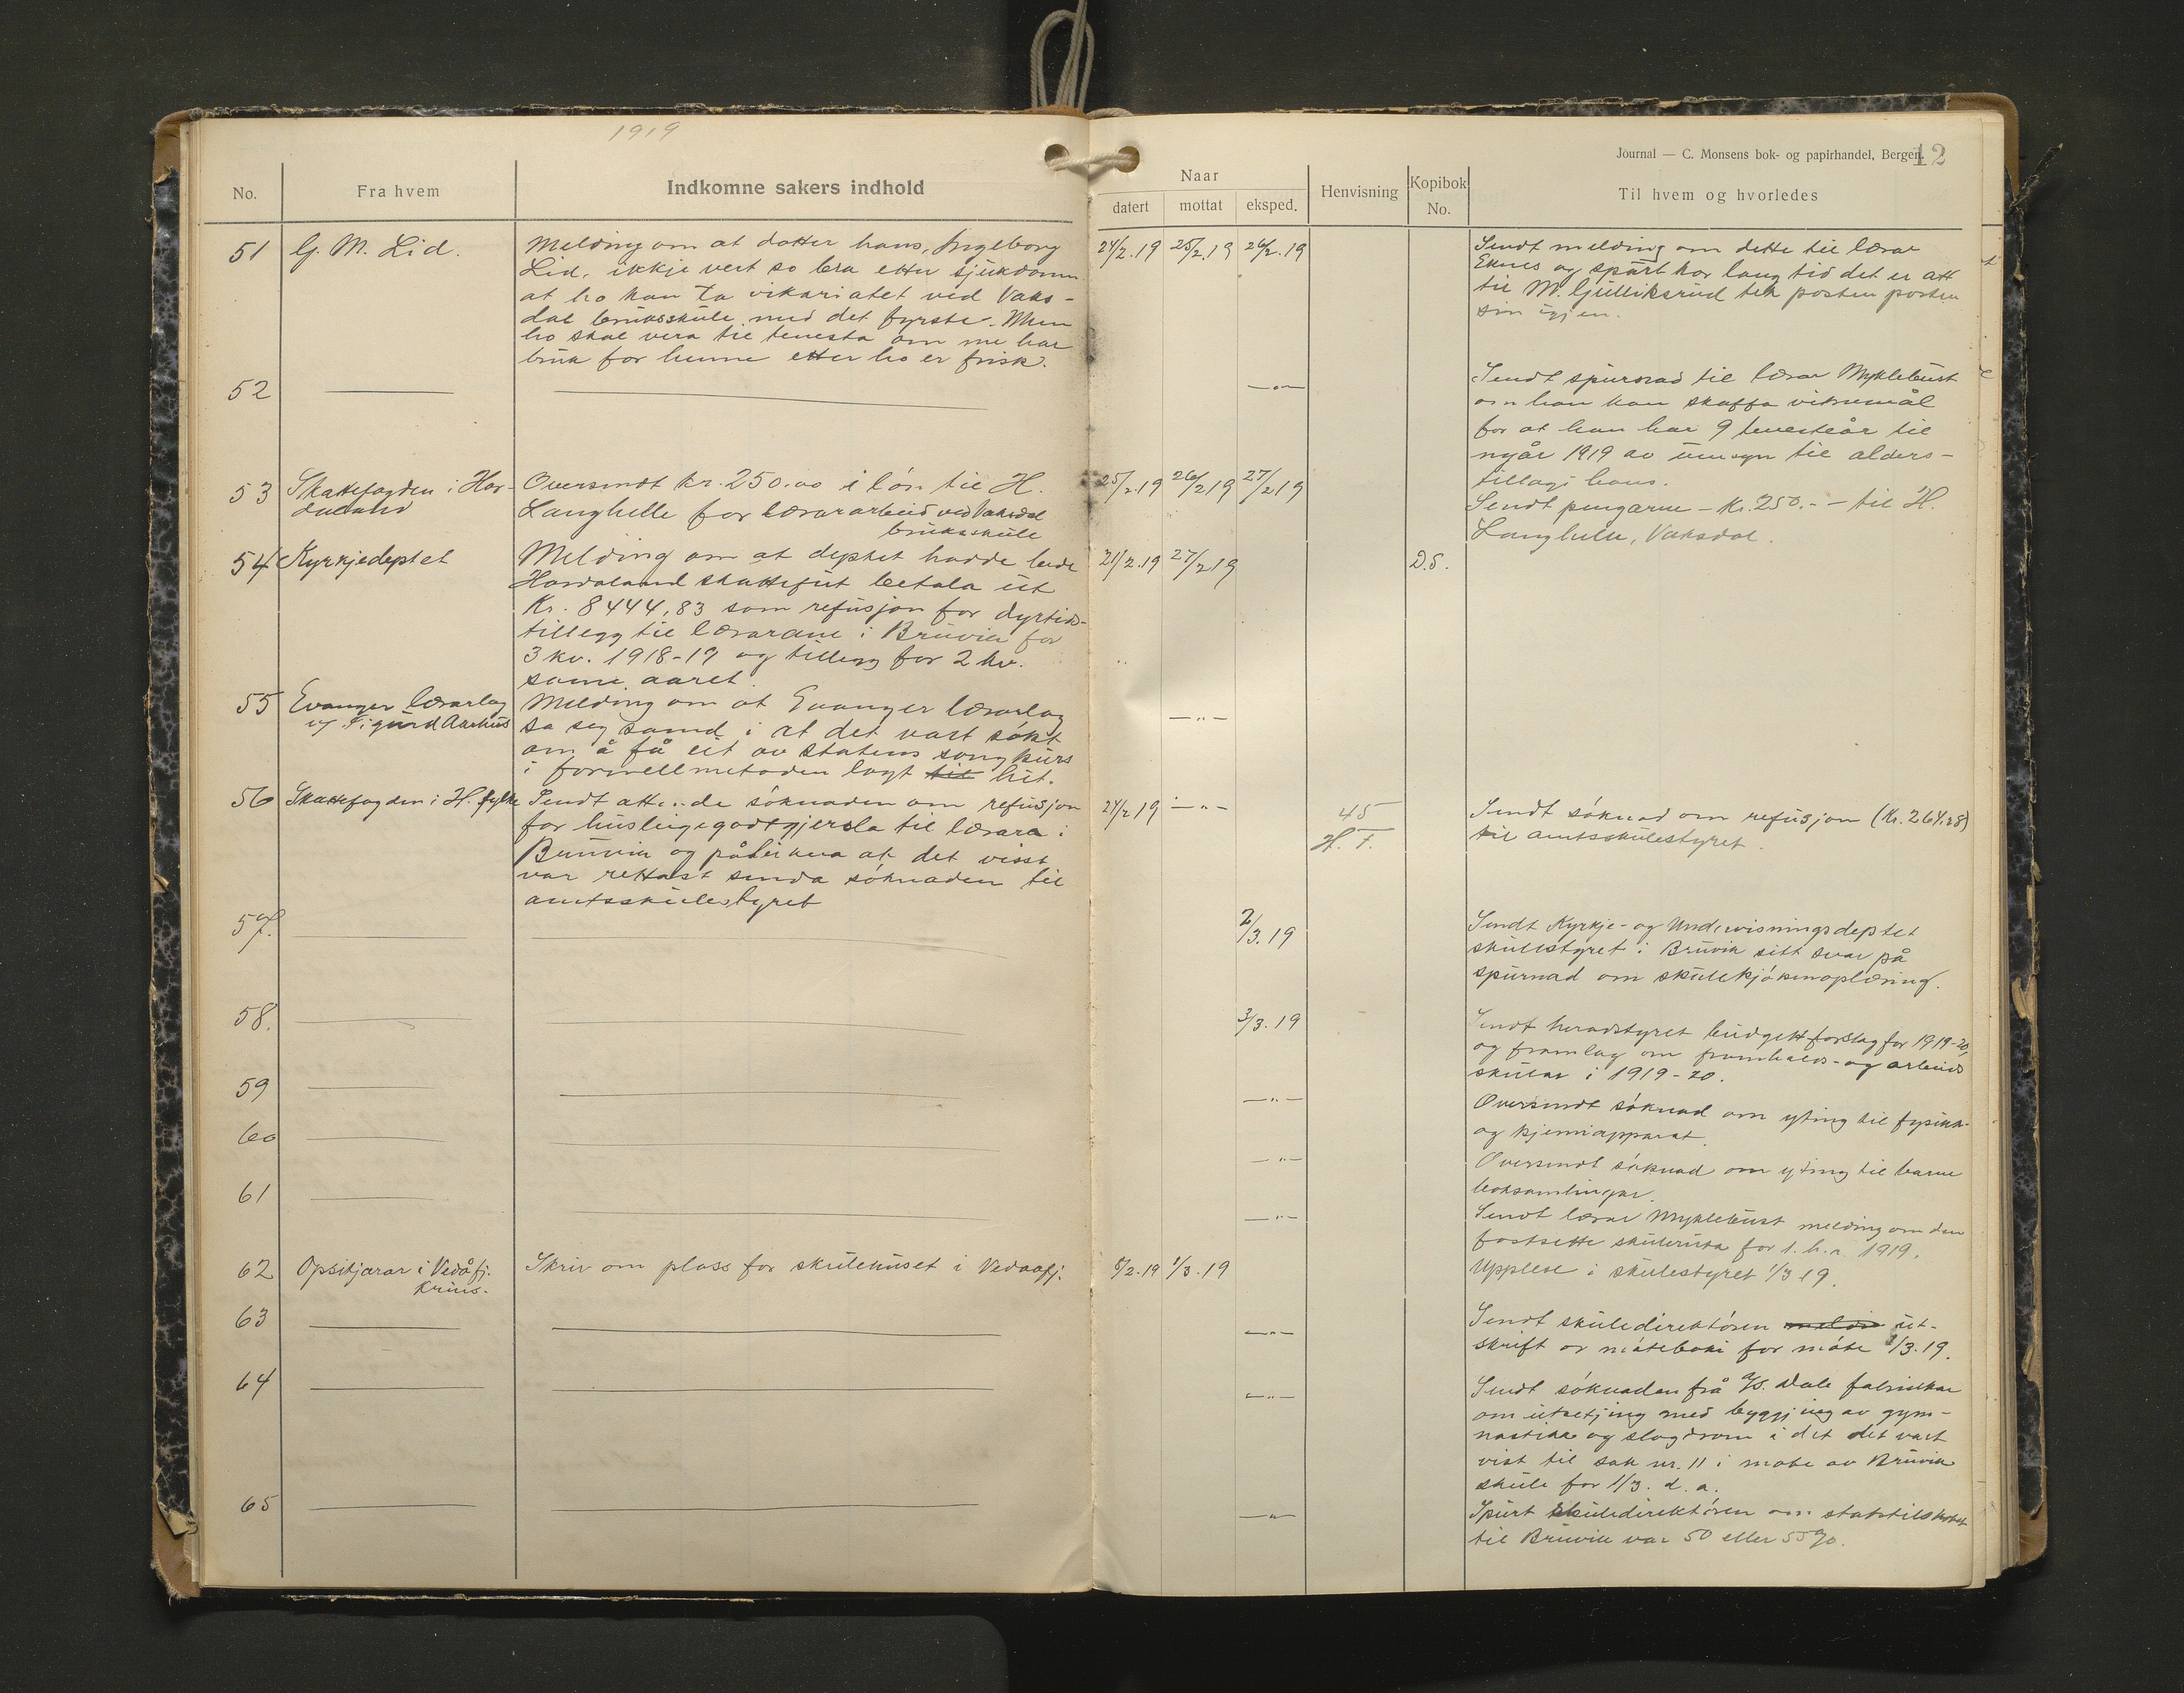 1919
Journal — C. Monsens bok- og papirhandel, Bergen.
12
No.
Fra hvem
Indkomne sakers indhold
Naar
datert
mottat
eksped.
Henvisning
Kopibok No.
Til hvem og hvorledes
51
G. M. Lid.
Melding om at dotter hans, Ingeborg
Lid, ikkje vert so bra etter sjukdomen
at ho kan ta vikariatet ved Vaks-
dal bruksskule med det fyrste. Men
ho skal vera til tenesta om me har
bruk for henne etter ho er frisk.
24/2.19
25/2.19
26/2.19
Sendt melding om dette til lærar
Eknes og spurt kor lang tid det er att
til M. Gulliksrud tek posten posten
sin igjen.
52
— " —
Sendt spurnad til lærar Myklebust
om han kan skaffa vitnemål
for at han har 9 tenesteår til
nyår 1919 av umsyn til alders-
tillagi hans.
53
Skattefogden i Hor-
daland
Oversendt kr. 250.00 i løn til H.
Langhelle for lærararbeid ved Vaksdal
bruksskule
25/2.19
26/2 19
27/2 19
Sendt pengarne - kr. 250.- - til H.
Langhelle, Vaksdal.
54
Kyrkjedeptet
Melding om at deptet hadde bede
Hordaland skattefut betala ut
Kr. 8444,83 som refusjon for dyrtids-
tillegg til lærarane i Bruvik for
3 kv. 1918-19 og tillegg for 2 kv.
same aaret.
21/2.19
27/2 19
D.S.
55
Evanger lærarlag
v/ Sigurd Aarhus
Melding om at Evanger lærarlag
sa seg samd i at det vart søkt
om å få eit av statens songkurs
i formellmetoden lagt til hit.
— " —
56
Skattefogden i H. fylke
Sendt atte..de søknaden om refusjon
for husleigegodtgjersla til lærara i
Bruvik og påteikna at det visst
var rettast senda søknaden til
amtsskulestyret
24/2 19
— " —
45
H. F.
Sendt søknad om refusjon (Kr. 264.28)
til amtsskulestyret.
57.
2/3.19
Sendt Kyrkje- og Undervisningsdeptet
skulestyret i Bruvik sitt svar på
spurnad om skulekjøkenoplæring.
58.
3/3.19
Sendt heradstyret budgettforslag for 1919-20,
og framlag om framhalds- og arbeids
skular i 1919-20.
59
— " —
Oversendt søknad om yting til fysikk-
og kjemiapparat.
60
— " —
Oversendt søknad om yting til barne
boksamlingar.
61
— " —
Sendt lærar Myklebust melding om den
fastsette skuleruta for 1. h. a. 1919.
62
Opsitjarar i Vedåfj.
krins.
Skriv om plass for skulehuset i Vedaafj.
5/2.19
1/3.19
Upplese i skulestyret 1/3 19.
63
— " —
Sendt skuledirektøren meldi ut-
skrift or møteboki for møte 1/3.19.
64
— " —
Sendt søknaden frå A/S. Dale fabrikkar
om utsetjing med byggjing av gym-
nastikk og sløgdrom i det det vart
vist til sak nr. 11 i møte av Bruvik
skule for 1/3. d. a.
65
— " —
Spurt skuledirektøren om statstilskotet
til Bruvik var 50 eller 55%.